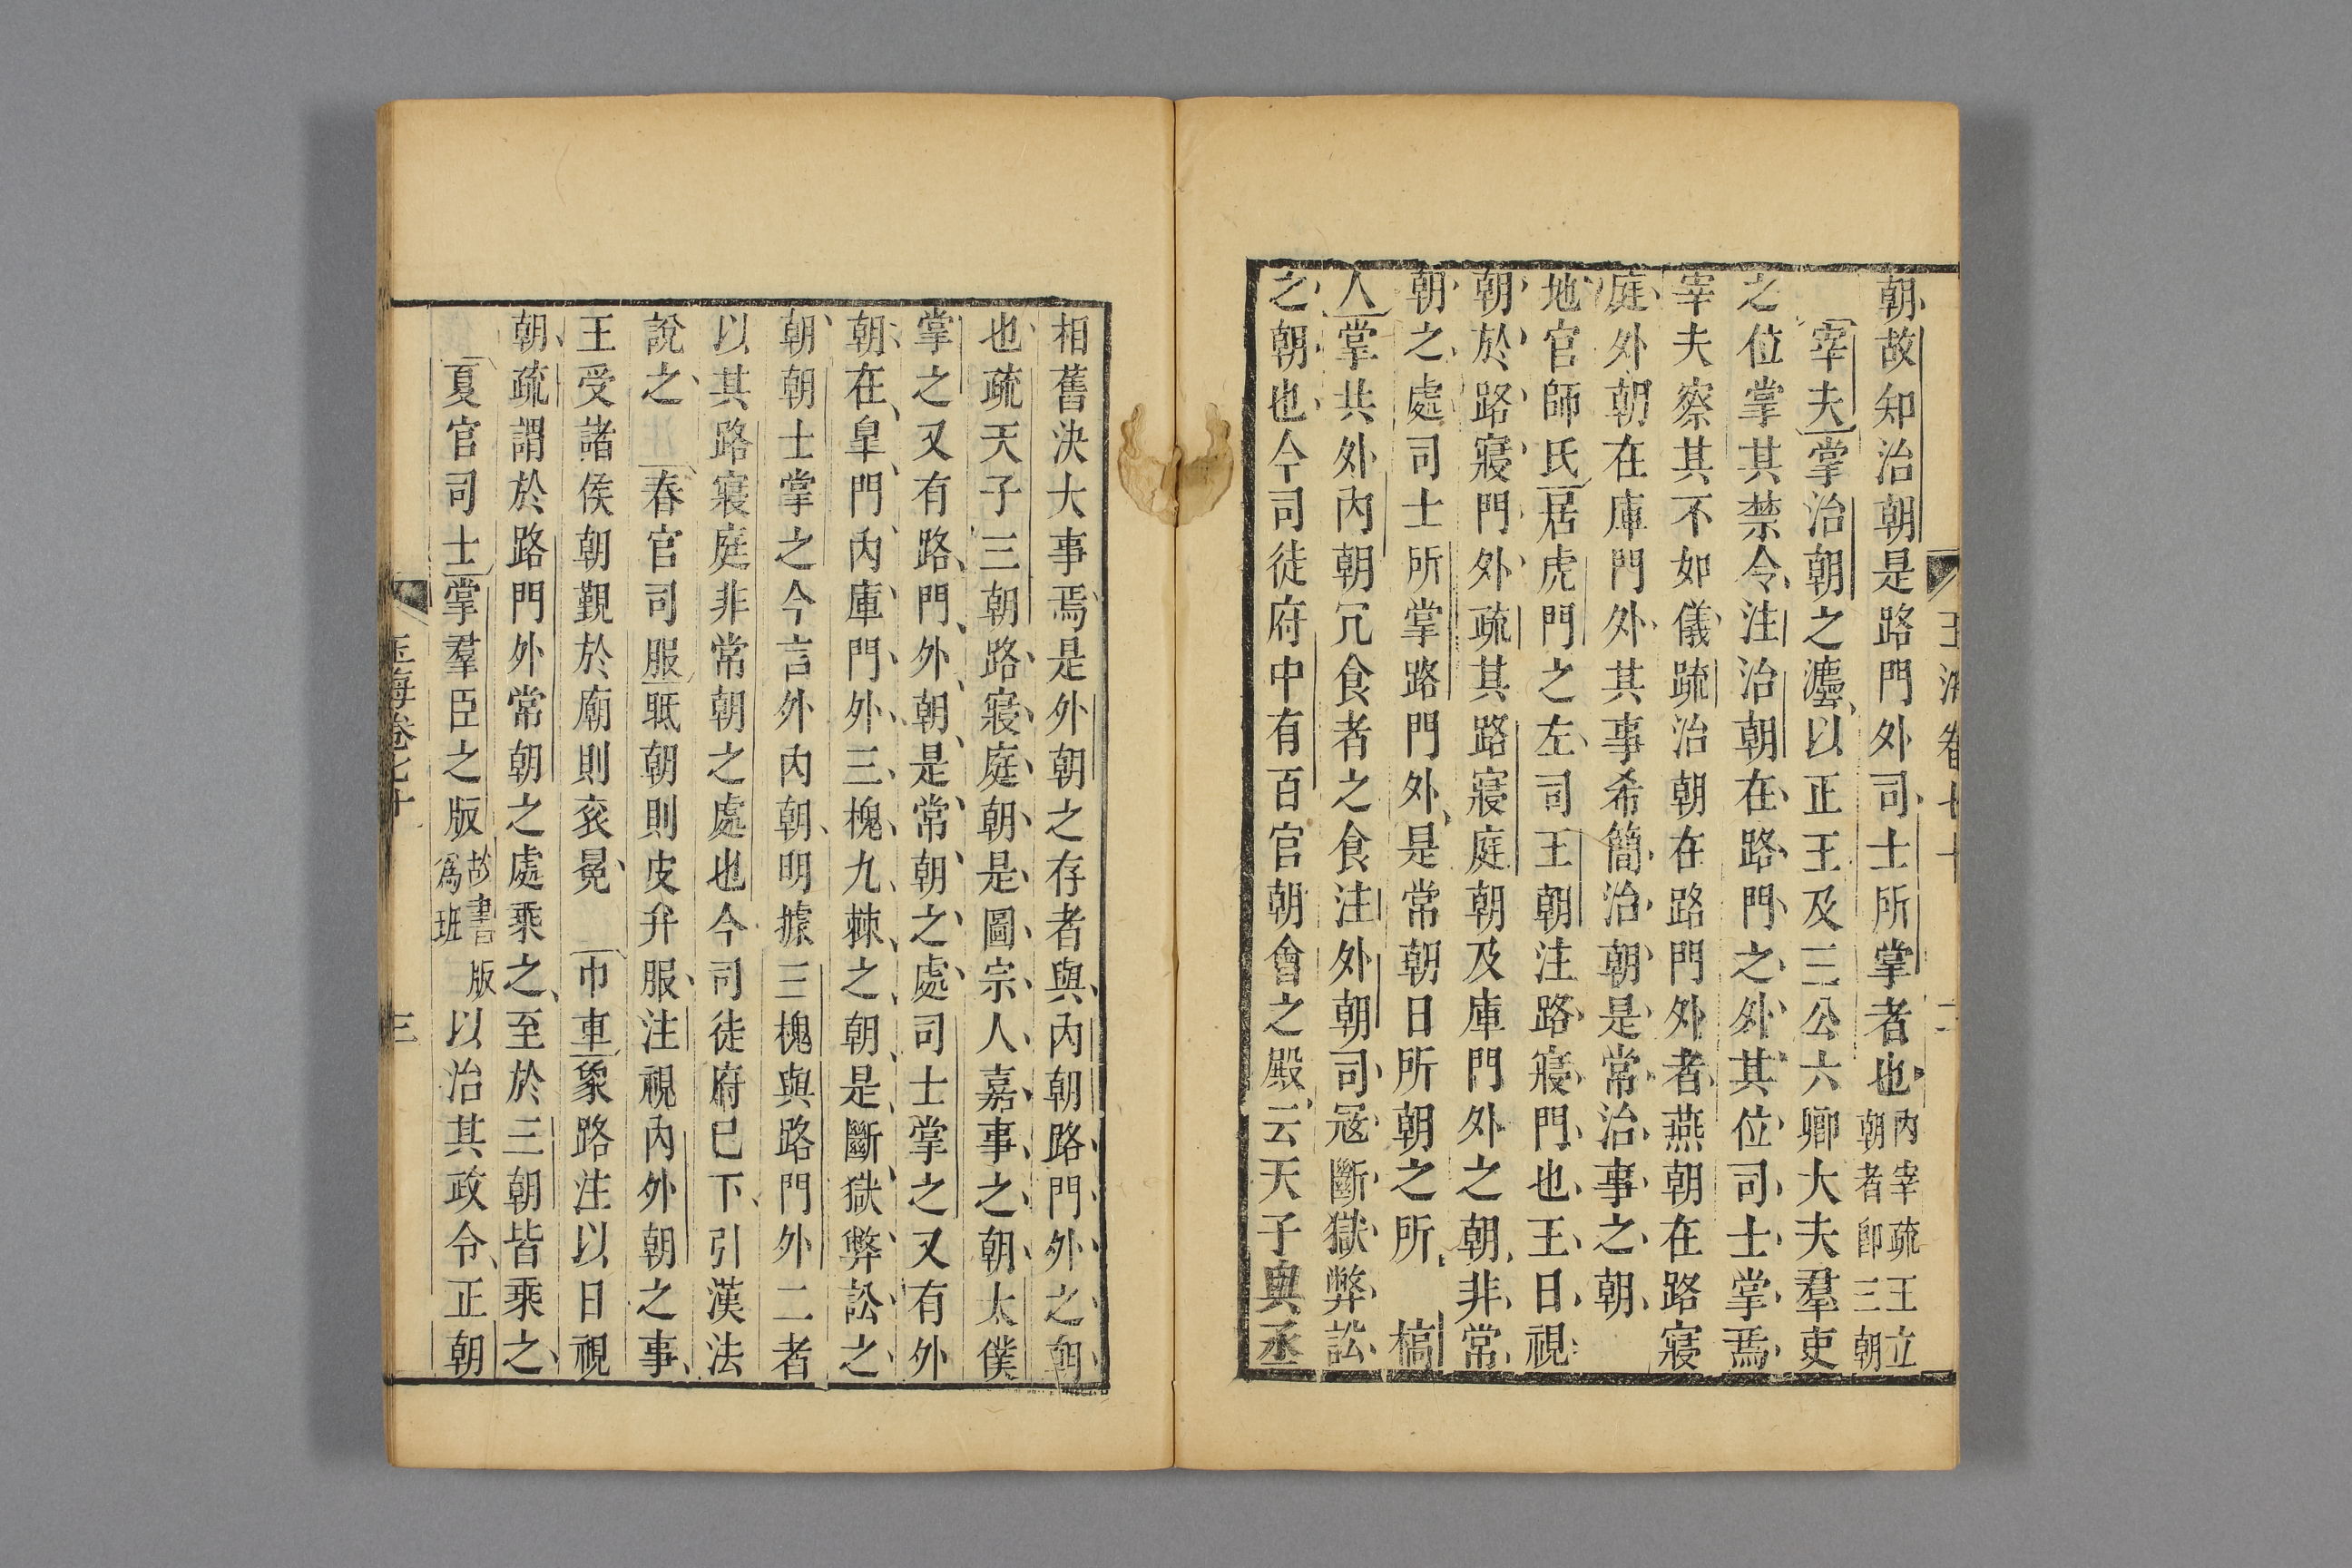 朝故知治朝是路門外司士所掌者也內宰疏王立朝者卽三朝
宰夫掌治朝之灋以正王及三公六卿大夫羣吏
之位掌其禁令注治朝在路門之外其位司士掌焉
宰夫察其不如儀疏治朝在路門外者燕朝在路寢
庭外朝在庫門外其事希簡治朝是常治事之朝
地官師氏居虎門之左司王朝注路寢門也王日視
朝於路寢門外疏其路寢庭朝及庫門外之朝非常
朝之處司士所掌路門外是常朝日所朝之所 槁
人掌共外內朝冗食者之食注外朝司寇斷獄弊訟
之朝也今司徒府中有百官朝會之殿云天子與丞
相舊決大事焉是外朝之存者與內朝路門外之朝
也疏天子三朝路寢庭朝是圖宗人嘉事之朝太僕
掌之又有路門外朝是常朝之處司士掌之又有外
朝在皐門內庫門外三槐九棘之朝是斷獄弊訟之
朝朝士掌之今言外內朝明據三槐與路門外二者
以其路寢庭非常朝之處也今司徒府已下引漢法
說之 春官司服眡朝則皮弁服注視內外朝之事
王受諸侯朝覲於廟則袞冕 巾車象路注以日視
朝疏謂於路門外常朝之處乘之至於三朝皆乘之
夏官司士掌羣臣之版故書版爲班以治其政令正朝
玉海卷七十 三